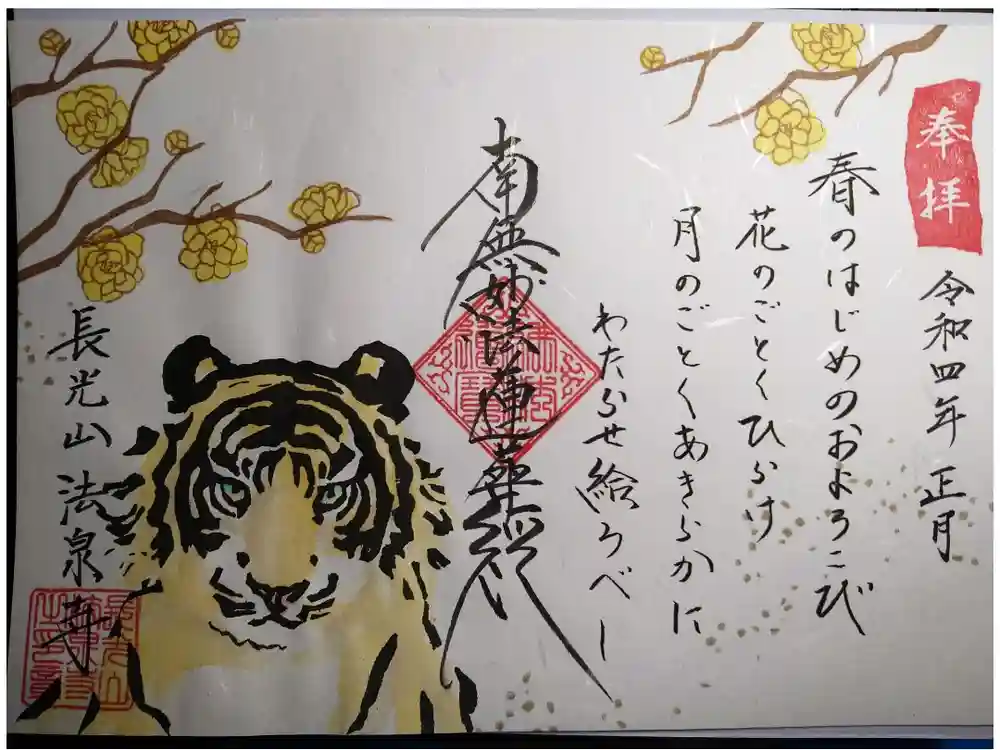 奉拝
令和四年 正月
春のはじめのおよろこび
花のごとくひらけ
月のごとくあきらかに
わたらせ給うべし
南無妙法蓮華経
長光山法泉寺